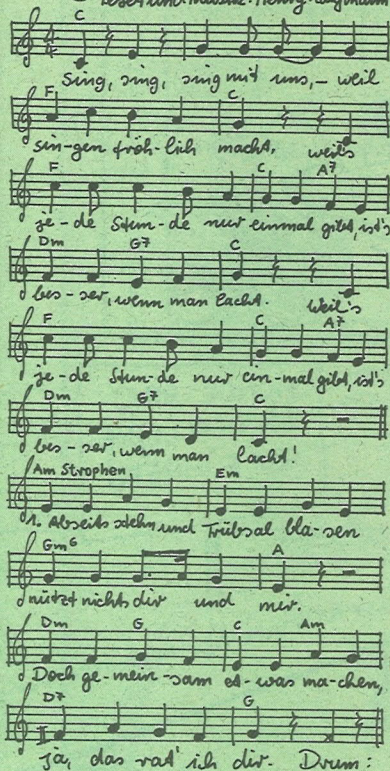 Text und Musik: Henry
C
4/4
Sing, sing, sing mit uns, – weil
F C
sin-gen fröh-lich macht, weil's
F C A7
je-de Stun-de nur einmal gibt, ist's
Dm G7 C
bes-ser, wenn man lacht. Weil's
F C A7
je-de Stun-de nur ein-mal gibt, ist's
Dm G7 C
bes-ser, wenn man lacht!
Am Strophen Em
1. Abseits stehn und Trübsal bla-sen
Gm6 A
nützt nichts dir und mir.
Dm G C Am
Doch ge-mein-sam et-was ma-chen,
D7 G
ja, das rat' ich dir. Drum: